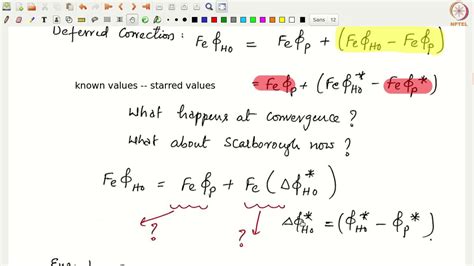 NPTEL
Sans 12
Deferred Correction: Feϕ_Ho = Feϕ_p + (Feϕ_Ho - Feϕ_p)
known values -- starred values
= Feϕ_p + (Feϕ_Ho^* - Feϕ_p^*)
What happens at convergence ?
What about Scarborough now ?
Feϕ_Ho = Feϕ_p + Fe(Δϕ_Ho^*)
? ? Δϕ_Ho^* = (ϕ_Ho^* - ϕ_p^*)